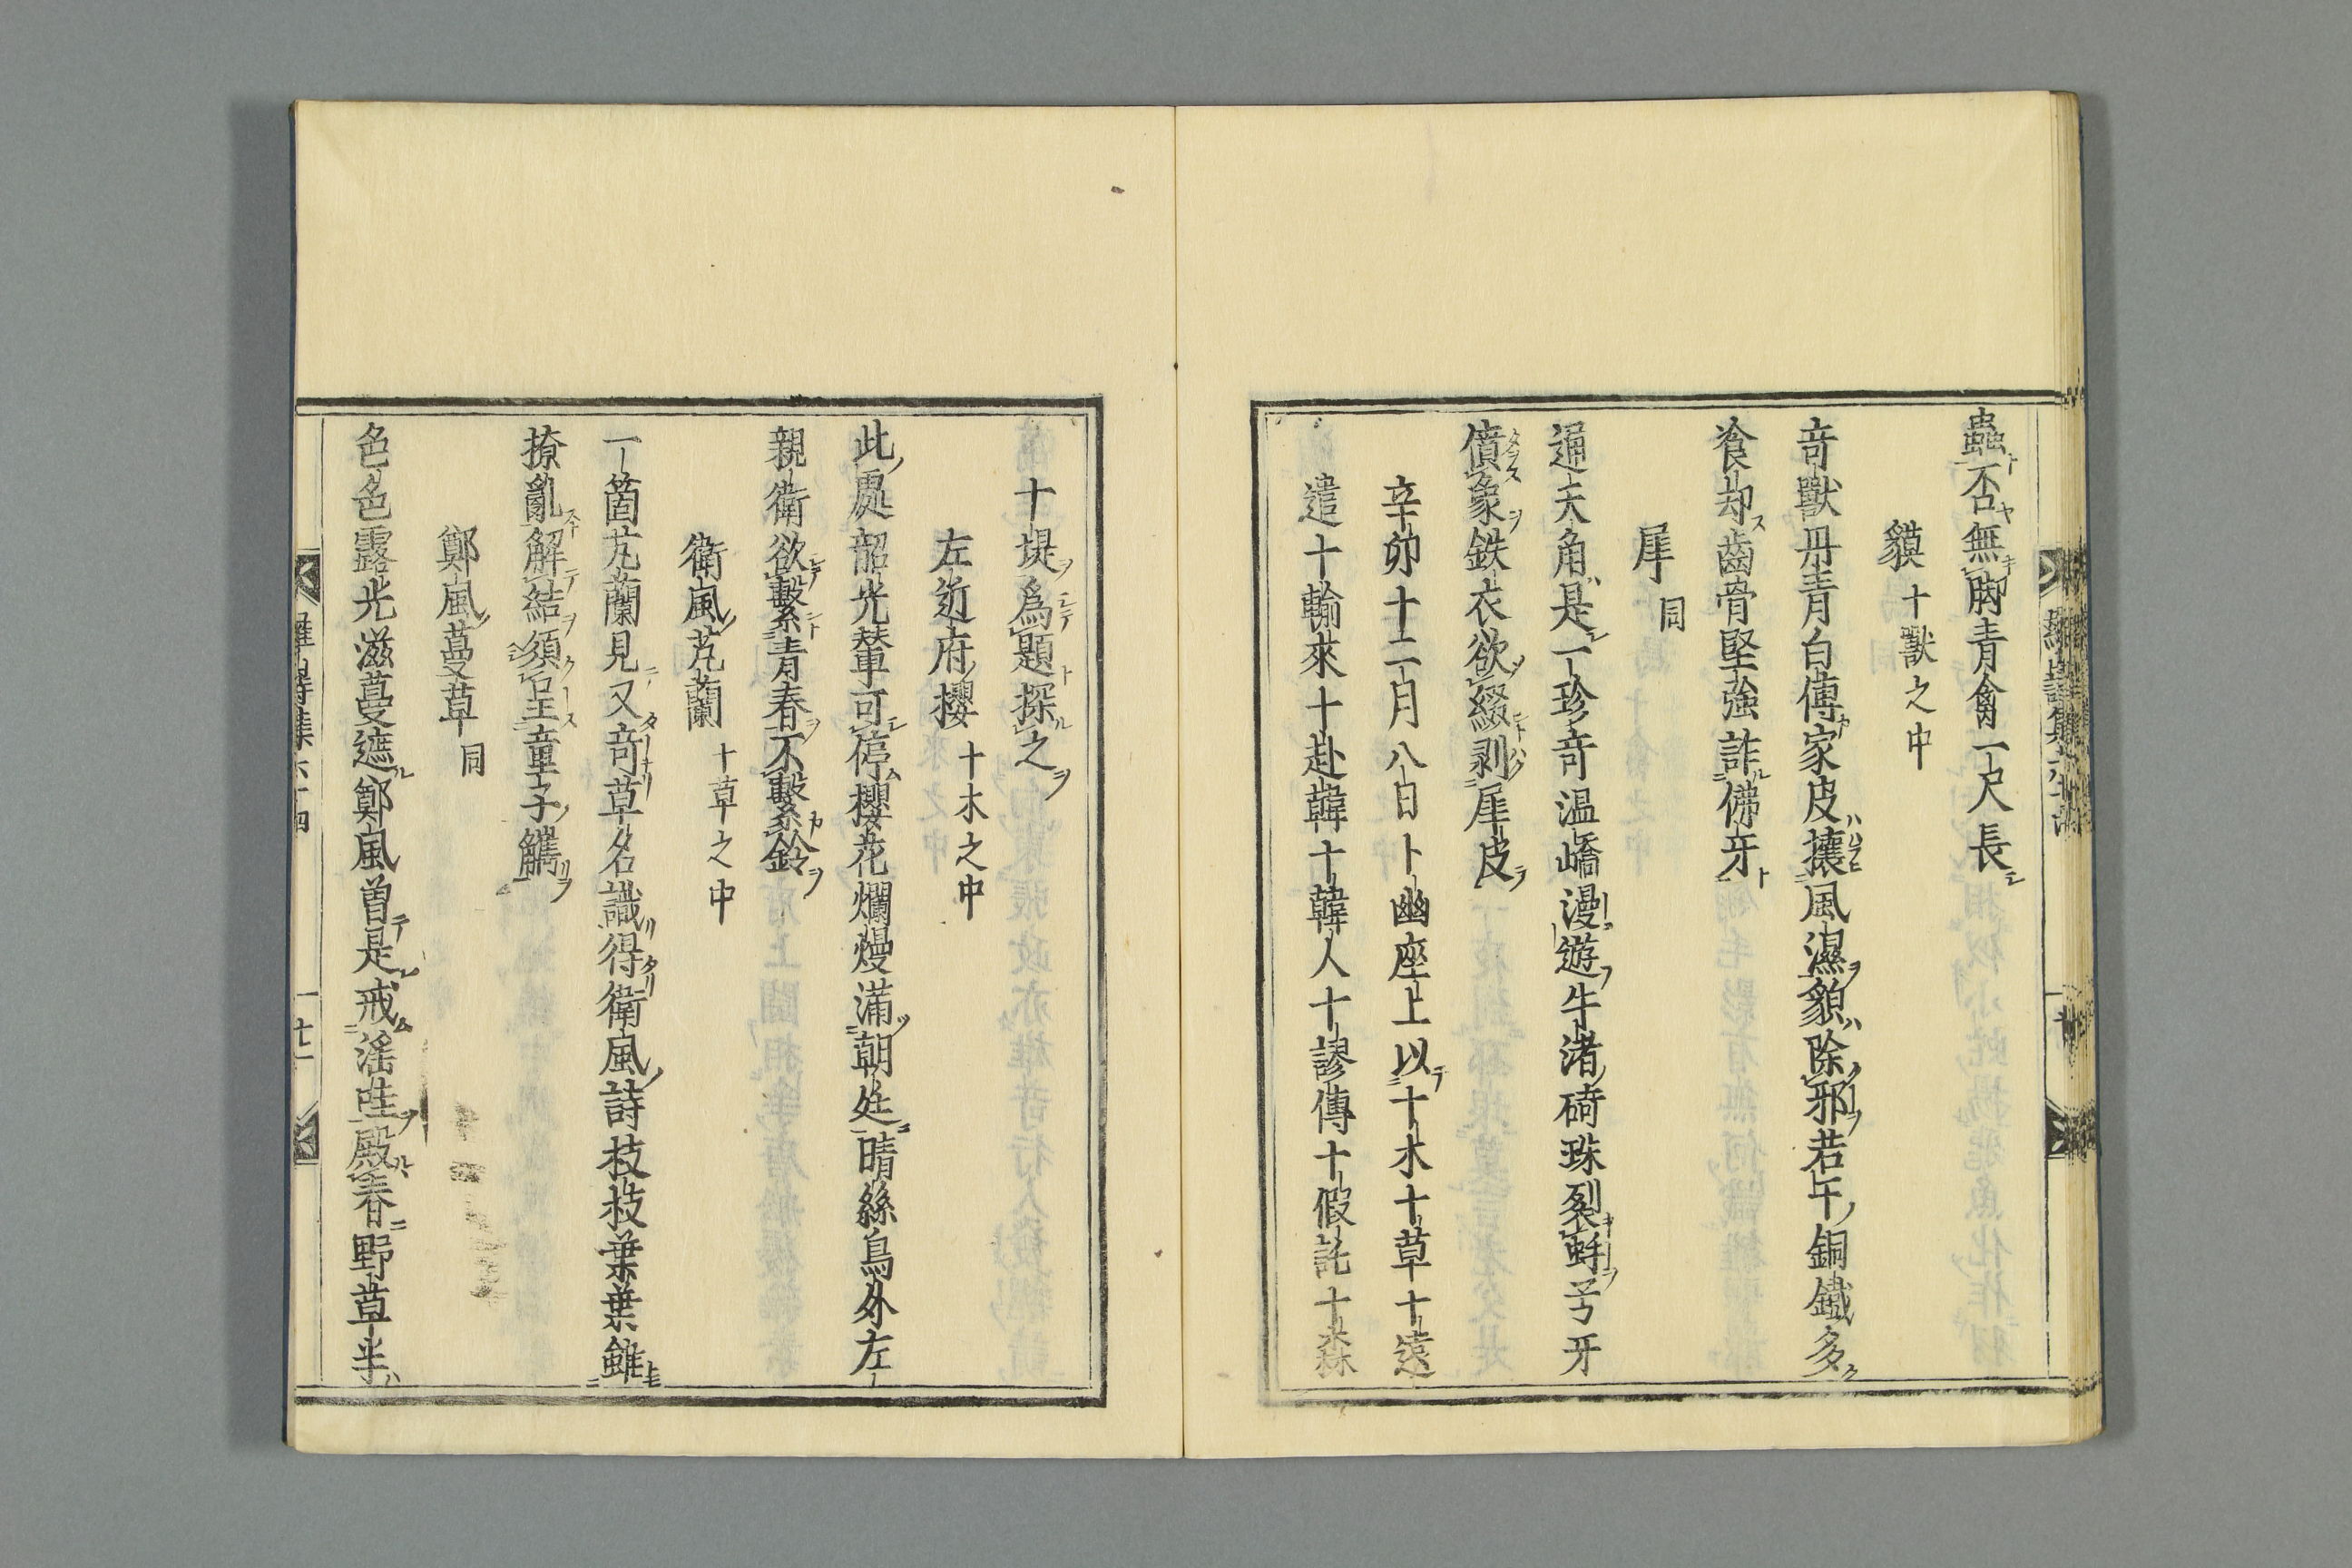 蟲不無脚青禽一尺長
貘 十獸之中
奇獸丹青白傳家皮攘風濕貌除邪若午銅鐵多
飡却齒骨堅強詐佛牙
犀 同
通天角是一珍奇温嶠漫遊牛渚碕珠裂蚌兮牙
僨象鉄衣欲綴剥犀皮
辛卯十二月八日卜幽座上以十木十草十遠
遣十輸來十赴韓十韓人十謬傳十假託十森
十堤爲題探之
左近府櫻 十木之中
此處韶光輦可停櫻花爛熳滿朝廷晴絲鳥外左
親衛欲繫青春不繫鈴
衛風芄蘭 十草之中
一箇芄蘭見又奇草名識得衛風詩枝枝葉葉雖
撩亂解結須呈童子觿
鄭風蔓草 同
色色露光滋蔓遮鄭風曽是戒滛哇殿春野草半